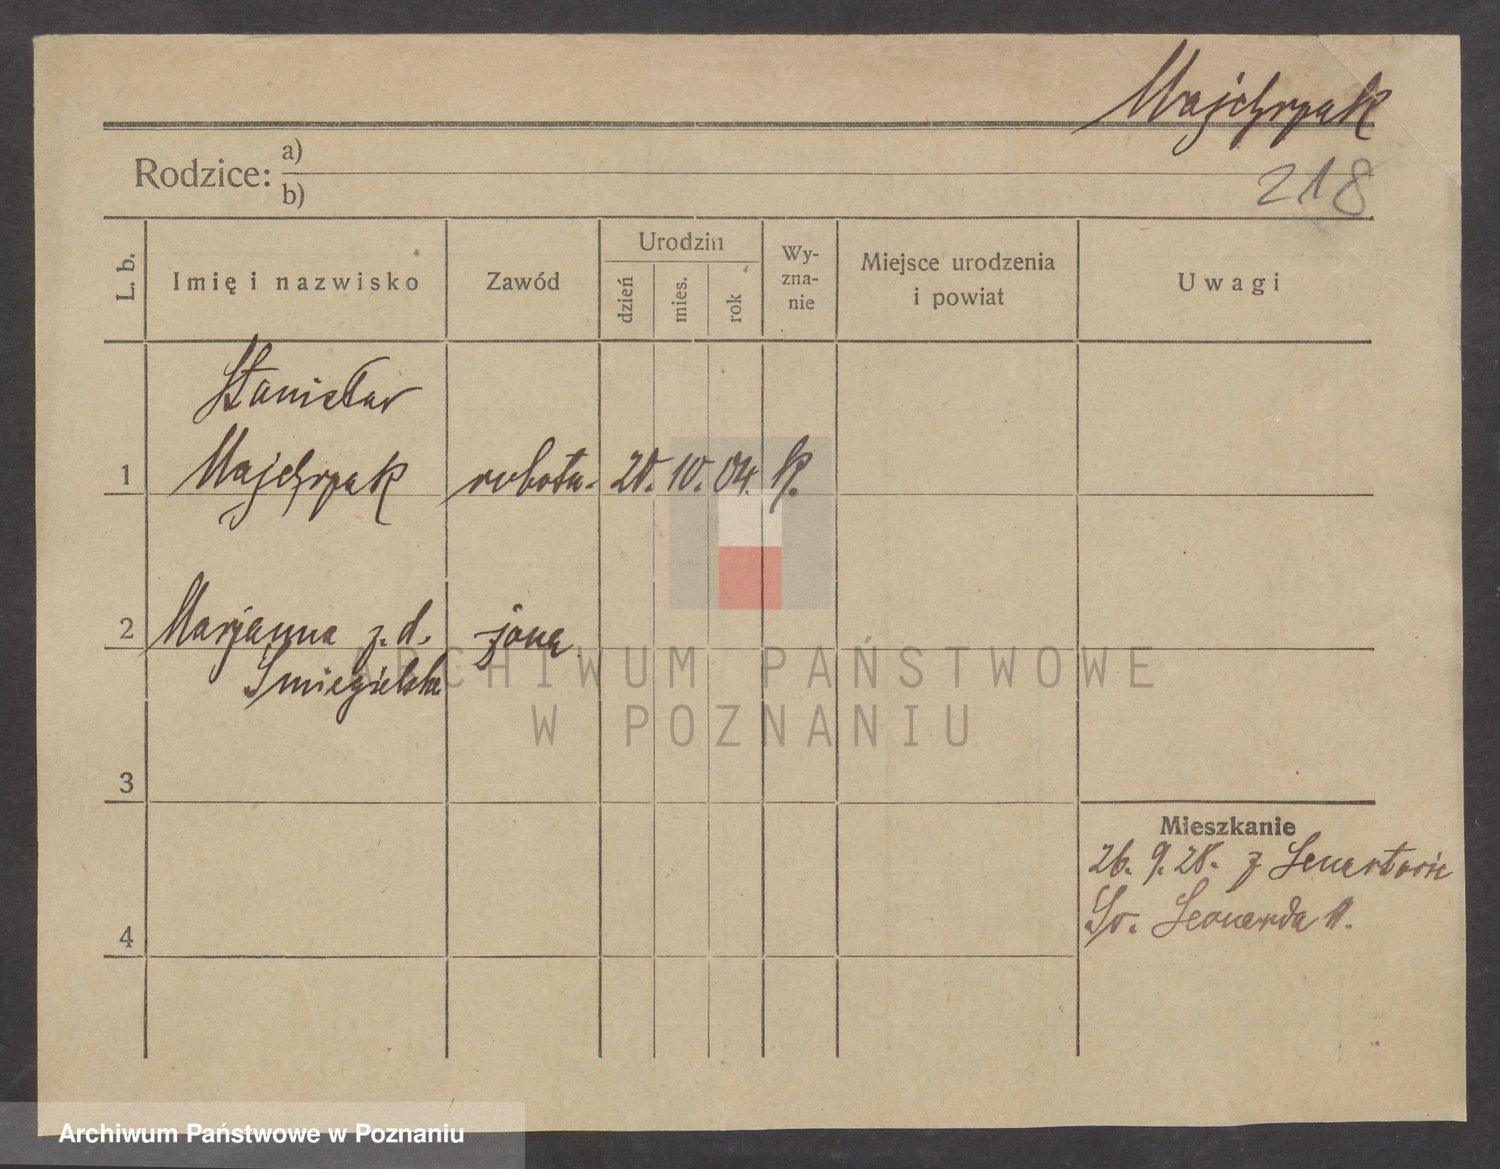 Majchrzak
Rodzice: a)
b)
218
L. b.
Imię i nazwisko
Zawód
Urodzin
dzień
mies.
rok
Wy-
zna-
nie
Miejsce urodzenia
i powiat
Uwagi
Stanisław
1 Majchrzak robotn. 20. 10. 04. k.
2 Marjanna z. d. żona
Śmigielska
3
4
Mieszkanie
26. 9. 28. z
Św. Leonarda
ARCHIWUM PAŃSTWOWE
W POZNANIU
Archiwum Państwowe w Poznaniu